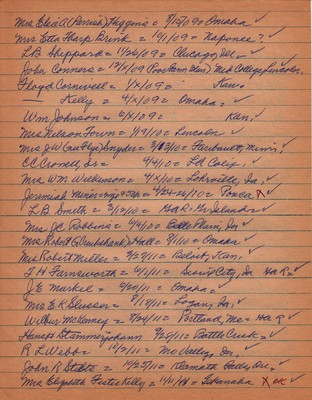 Mrs Eliza A (Parrish) Higgins = 9/12/09 = Omaha ✓
Mrs Etta Harp Brink = 10/1/09 = Naponee? ✓
L.B. Sheppard = 1/26/09 = Chicago, Ill. ✓
John Connors = (Poor Farm Man) Med College Lincoln.
Floyd Cornwell = 4/x/09 = Kans ✓
— Kelly = 4/x/09 = Omaha ✓
Wm Johnson = 6/x/09 = Kan. ✓
Mrs Nelson Town = 1/19/10 = Lincoln ✓
Mrs J W Snyder = Faribault, Minn. ✓
C C Crowell, Sr = 4/4/10 = Calif. ✓
Mrs Wm Wilkinson = 4/x/10 = Lohrville, Ia. ✓
Jeremiah = 4/24-26/10 = Ponca X
L B Smith = 3/12/10 = G.A.R. Gr Island ✓
Mrs J C Robbins = 4/4/10 = Belle Plain, Ia ✓
Mrs Robert (Cruikshank) Hall = 9/1/10 = Omaha ✓
Mrs Robert Miller = 9/29/11 = Beloit, Kan. ✓
J H Farnsworth = 6/1/11 = Sioux City, Ia G.A.R. ✓
J.E. Markel = 9/20/11 = Omaha ✓
Mrs E K Slusser = 9/19/11 = Logan, Ia. ✓
Wilbur McKenney = 9/24/11 = Portland, Me = G.A.R. ✓
Hans Stammerjohann 9/26/11 = Battle Creek ✓
R L Webb = 10/2/11 = Mo Valley, Ia. ✓
John R Stotts = 10/25/11 = Klamath Falls, Ore. ✓
Mrs Elizabeth Kelly = Tekamah X